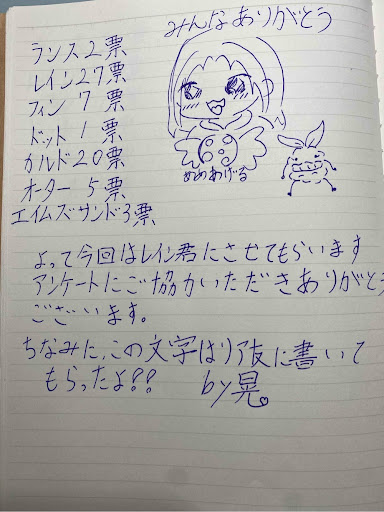 みんなありがとう
ランス2票
レイン27票
フィン 7 票
ドット 1 票
カルド20票
オーター 5 票
エイムズサンド3票
めめあげる
よって今回はレイン君にさせてもらいます
アンケートにご協力いただきありがとう
ございます。
ちなみに、この文字はリア友に書いて
もらったよ??
by晃。